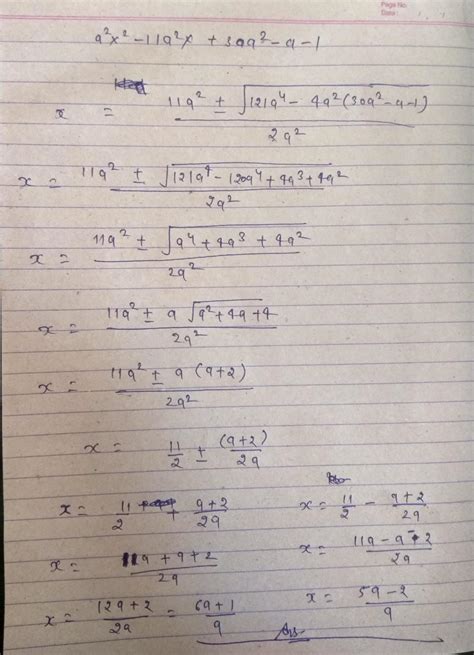 Page No.
Date :
a²x² - 11a²x + 30a² - a - 1
x = 11a² ± √121a⁴ - 4a²(30a² - a - 1) / 2a²
x = 11a² ± √121a⁴ - 120a⁴ + 4a³ + 4a² / 2a²
x = 11a² ± √a⁴ + 4a³ + 4a² / 2a²
x = 11a² ± a √a² + 4a + 4 / 2a²
x = 11a² ± a (a+2) / 2a²
x = 11/2 ± (a+2)/2a
x = 11/2 + a+2/2a
x = 11/2 - a+2/2a
x = 11a + a + 2 / 2a
x = 11a - a - 2 / 2a
x = 12a + 2 / 2a = 6a + 1 / a
x = 5a - 2 / a
Ans